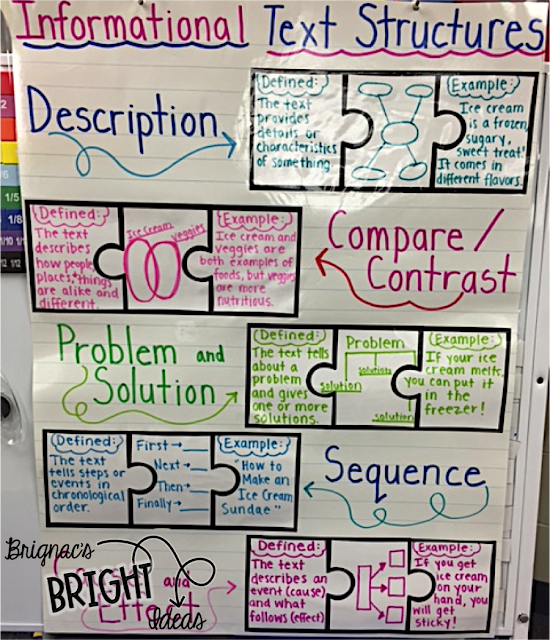 Informational Text Structures
Description
Defined:
The text
provides
details or
characteristics
of something.
Example:
Ice cream
is a frozen,
sugary,
sweet treat!
It comes in
different flavors.
Defined:
The text
describes
how people,
places, things
are alike and
different.
Ice Cream veggies
Example:
Ice cream and
veggies are
both examples of
foods, but veggies
are more
nutritious.
Compare/
Contrast
Problem and
Solution
Defined:
The text tells
about a
problem
and gives
one or more
solutions.
Problem
solution
solution
solution
Example:
If your ice
cream melts,
you can put it
in the
freezer!
Defined:
The text
tells steps or
events in
chronological
order.
First→
Next→
Then→
Finally→
Example:
"How to
Make an
Ice Cream
Sundae"
Sequence
and
Effect
Defined:
The text
describes an
event (cause)
and what
follows (effect)
Example:
If you get
ice cream
on your
hand, you
will get
sticky!
Brignac's
BRIGHT
Ideas
1/6
1/8
1/10
1/12